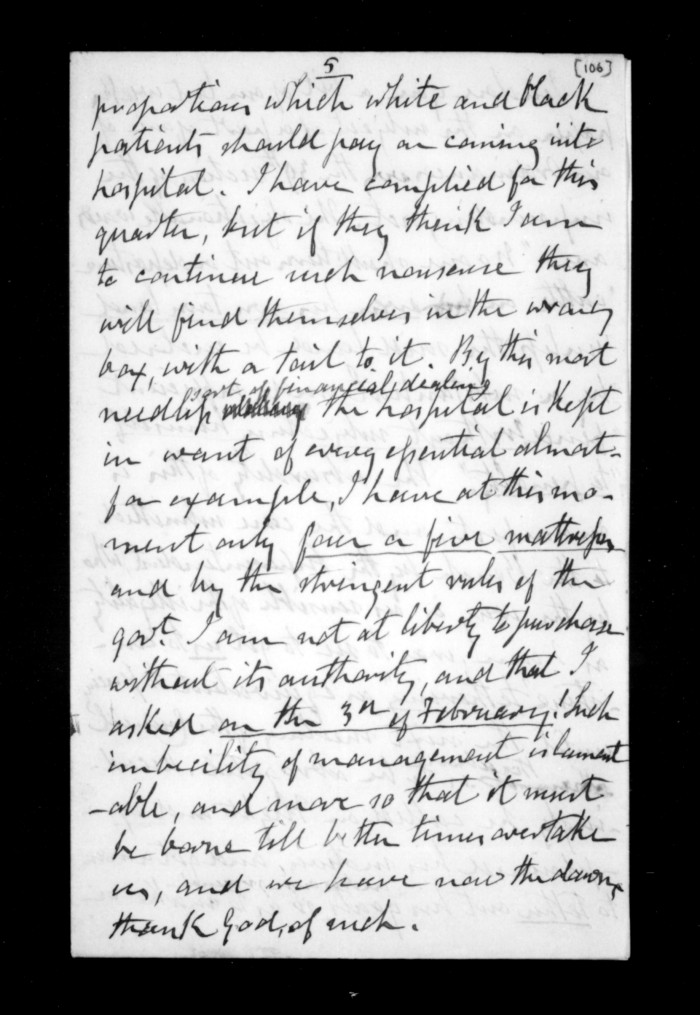 5
[106]
proportions which white and black
patients should pay on coming into
hospital. I have complied for this
quarter, but if they think I am
to continue such nonsense they
will find themselves in the wrong
box, with a tail to it. By this most
part of financial dealing
needless the hospital is kept
in want of every essential almost.
for example, I have at this mo-
ment only four or five mattresses
and by the stringent rules of the
govt. I am not at liberty to purchase
without its authority, and that I
asked on the 3rd of February! Such
imbecility of management is lament
-able, and more so that it must
be borne till better times overtake
us, and we have now the dawn,
thank God, of such.